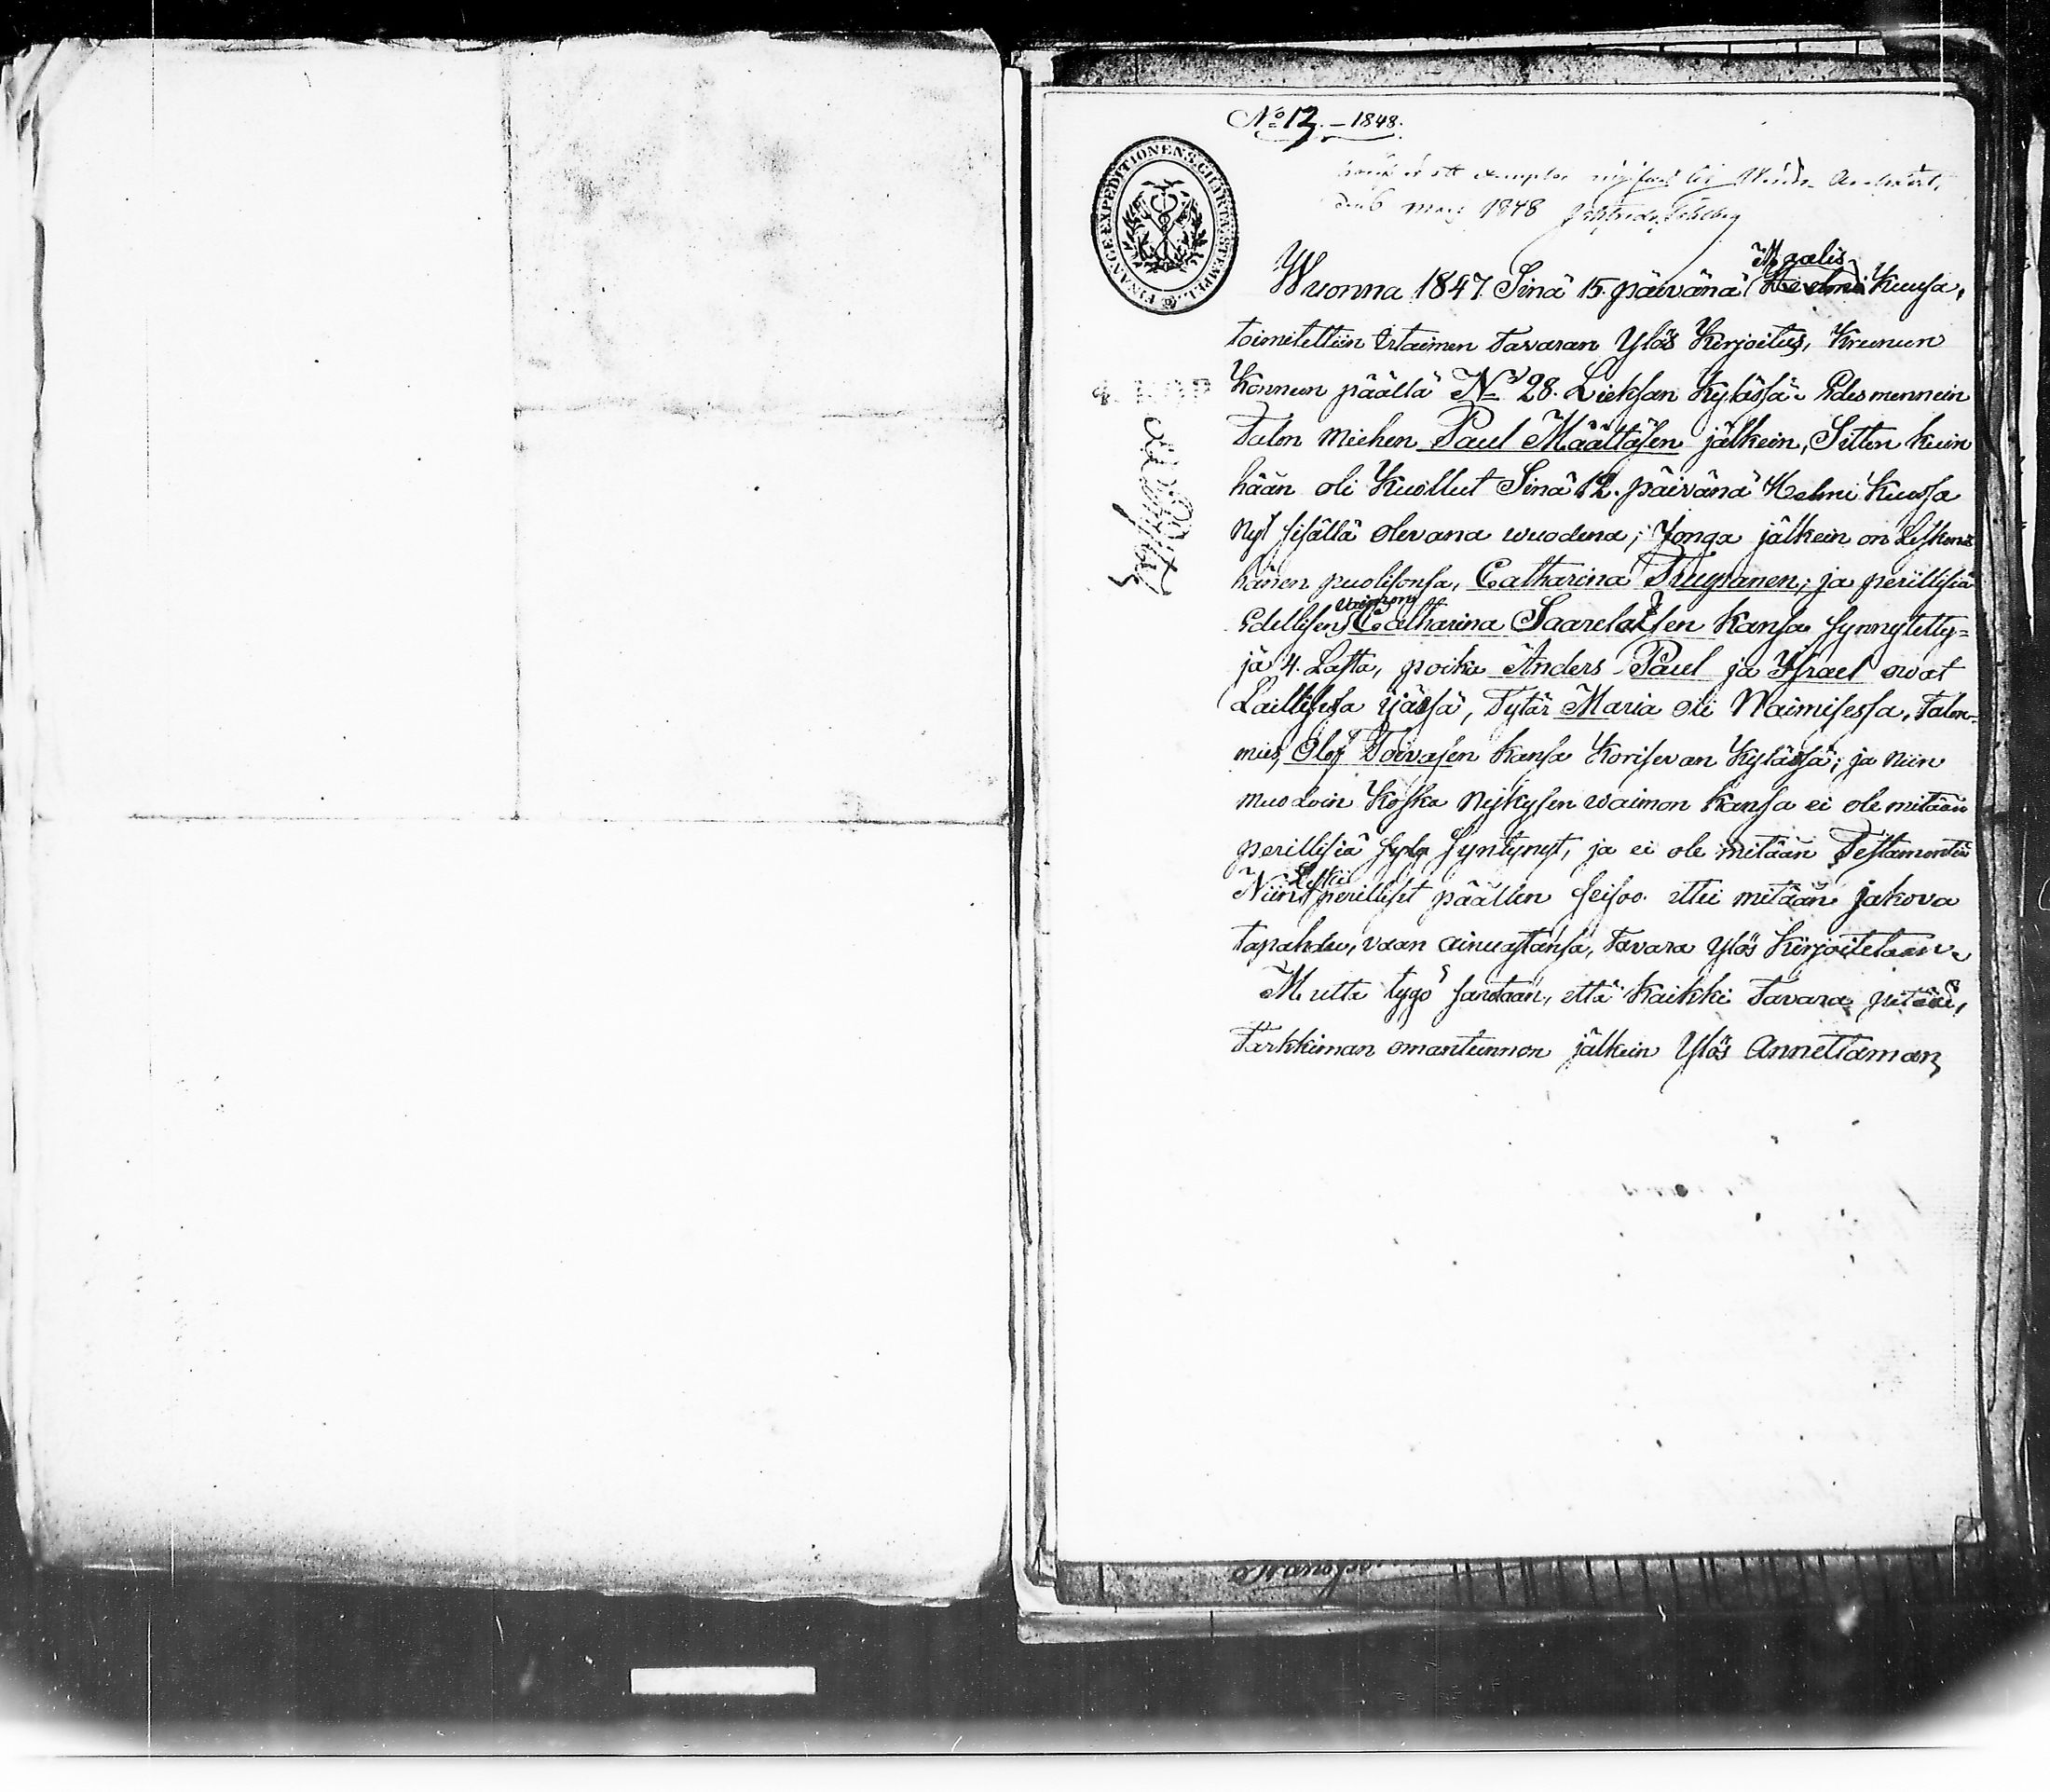 No 12. – 1848.
FINANCE EXPEDITIONENS CHARTÆ STEMPEL
ett exemplar
den 6 Maij 1848
Maalis
Wuonna 1847 Sinä 15. päivänä Helmi Kuusa,
toimitettiin Irtaimen Tavaran Ylös Kirjoitus, Kruunun
4. KOP
Konnun päällä No 28. Lieksan Kylässä Edesmennein
Talon miehen Paul Määttäsen jälkein, Sitten kuin
hään oli Kuollut Sinä 12. päivänä Helmi Kuussa
nyt sisällä olevana wuodena; Jonga jälkein on Leskenä
hänen puolisonsa, Catharina Truypanen; ja perillisiä
vaimons
Edellisen Catharina Saarelaisen Kansa synnytetty=
jä 4. Lasta, poika Anders Paul ja Israel owat
Laillisessa ijässä, Tytär Maria oli Naimisessa, Talon=
mies, Olof Toivasen kansa Korisevan Kylässä; ja niin
muodoin Koska nyskysen waimon kansa ei ole mitään
perillisiä syntynyt, ja ei ole mitään Testamentiä
Leskii
Niin perilliset päällen seisoo. ettei mitään jakova
tapahdu, vaan ainuastansa, Tavara Ylös Kirjoitetaan.
Mutta tygö sanotaan, että kaikki Tavara pitää,
Tarkkiman omantunnon jälkein Ylös Annettaman